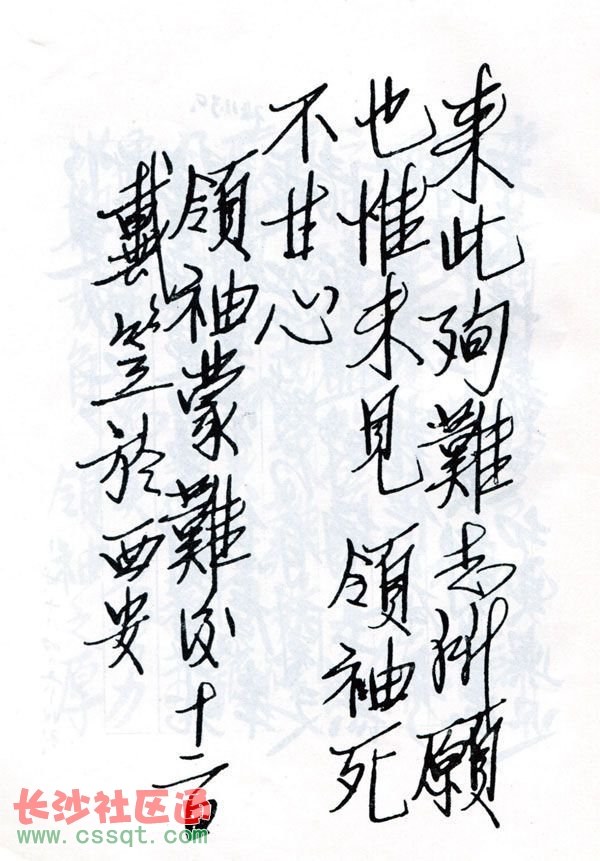 来此殉難志所願
也惟未見 領袖死
不甘心
領袖蒙難後十二日
戴笠於西安
长沙社区通
www.cssqt.com